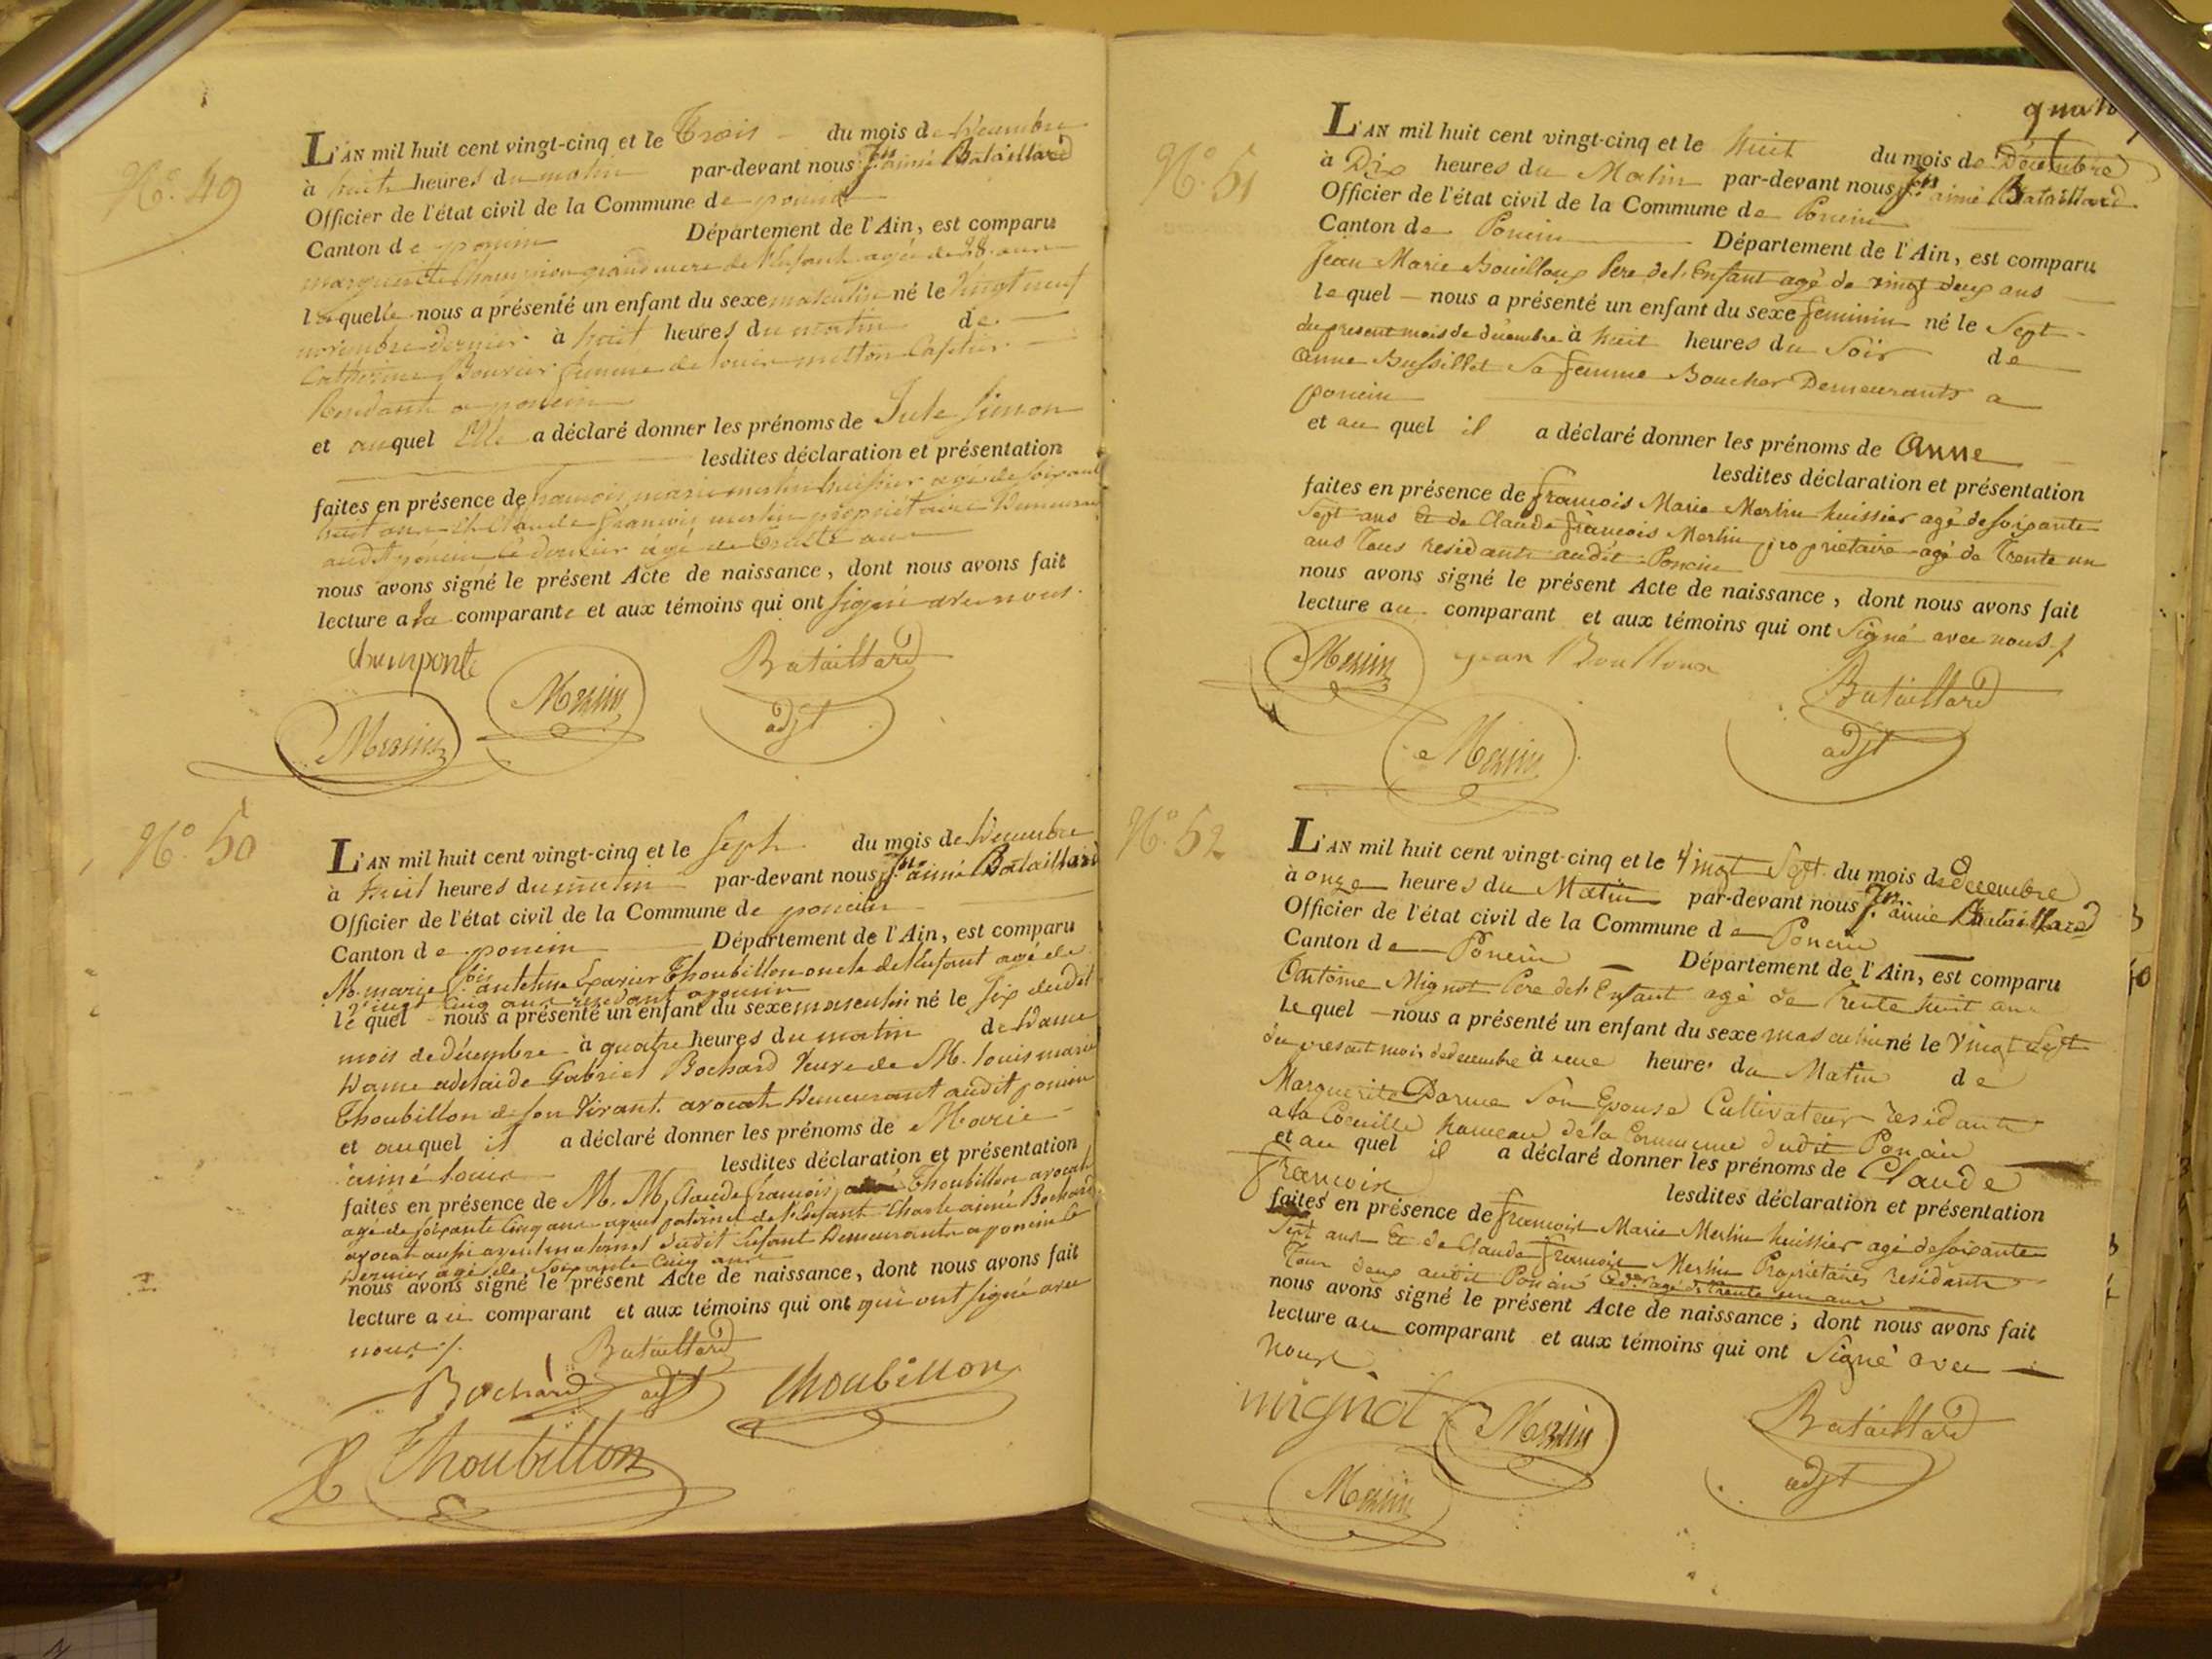 N.º 49
L'AN mil huit cent vingt-cinq et le Trois du mois de Decembre
à huit heures du matin par-devant nous Jn. aimé Bataillard
Officier de l'état civil de la Commune de poncin
Canton de poncin Département de l'Ain, est comparu
marguerite grand mere de l'Enfant agée de ans
laquelle nous a présenté un enfant du sexe masculin né le Vingt neuf
novembre dernier à huit heures du matin de
Catherine Bouvier femme de louis mitton
Residants a poncin
et auquel Elle a déclaré donner les prénoms de Jule Simon
lesdites déclaration et présentation
faites en présence de francois marie merlin huissier agé de soixante
huit ans et Claude francois merlin propriétaire Demeurant
audit poncin le dernier âgé de trente ans
nous avons signé le présent Acte de naissance, dont nous avons fait
lecture a la comparante et aux témoins qui ont signé avec nous.
Merlin Bataillard
Merlin adjt
N.º 50
L'AN mil huit cent vingt-cinq et le Sept du mois de Decembre
à huit heures du matin par-devant nous Jn. aimé Bataillard
Officier de l'état civil de la Commune de poncin
Canton de poncin Département de l'Ain, est comparu
M. marie antoine Thoubillon oncle de l'Enfant agé de
vingt cinq ans residant a poncin
lequel nous a présenté un enfant du sexe masculin né le six dudit
mois de décembre à quatre heures du matin de Dame
Dame adelaide Gabriel Bochard Veuve de M. louis marie
Thoubillon de son Vivant avocat Demeurant audit poncin
et auquel il a déclaré donner les prénoms de Marie
aimé louis lesdites déclaration et présentation
faites en présence de M. M. Claude francois Thoubillon avocat
agé de soixante Cinq ans ayeul paternel de l'Enfant Charle aimé Bochard
avocat aussi ayeul maternel dudit Enfant Demeurants a poncin le
Dernier agé de soixante Cinq ans
nous avons signé le présent Acte de naissance, dont nous avons fait
lecture au comparant et aux témoins qui ont qui ont signé avec
nous ./.
Bataillard
Bochard adjt Thoubillon
Thoubillon
N.º 51
L'AN mil huit cent vingt-cinq et le huit du mois de Décembre
à Dix heures du Matin par-devant nous Jn. aimé Bataillard
Officier de l'état civil de la Commune de Poncin
Canton de Poncin Département de l'Ain, est comparu
Jean Marie Bouilloux Pere de l'Enfant agé de vingt deux ans
lequel nous a présenté un enfant du sexe feminin né le Sept
du present mois de decembre à huit heures du Soir de
anne Bussillet Sa femme Boucher Demeurants a
poncin
et au quel il a déclaré donner les prénoms de Anne
lesdites déclaration et présentation
faites en présence de francois Marie Merlin huissier agé de soixante
Sept ans Et de Claude francois Merlin propriétaire agé de Trente un
ans Tous residants audit Poncin
nous avons signé le présent Acte de naissance, dont nous avons fait
lecture au comparant et aux témoins qui ont Signé avec nous /
Merlin Jean Boulloux
Bataillard
Merlin adjt
N.º 52
L'AN mil huit cent vingt-cinq et le Vingt Sept du mois de Decembre
à onze heures du Matin par-devant nous Jn. aimé Bataillard
Officier de l'état civil de la Commune de Poncin
Canton de Poncin Département de l'Ain, est comparu
Antoine Mignot Pere de l'Enfant agé de Trente huit ans
lequel nous a présenté un enfant du sexe masculin né le Vingt Sept
du present mois de decembre à une heure du Matin de
Marguerite Darme Son Epouse Cultivateur residants
a la Coeuille hameau de la Commune dudit Poncin
et au quel il a déclaré donner les prénoms de Claude
francois lesdites déclaration et présentation
faites en présence de francois Marie Merlin huissier agé de soixante
Sept ans Et de Claude francois Merlin Propriétaire residants
Tous deux audit Poncin agé de trente un ans
nous avons signé le présent Acte de naissance; dont nous avons fait
lecture au comparant et aux témoins qui ont Signé avec
nous
mignot Merlin Bataillard
Merlin adjt